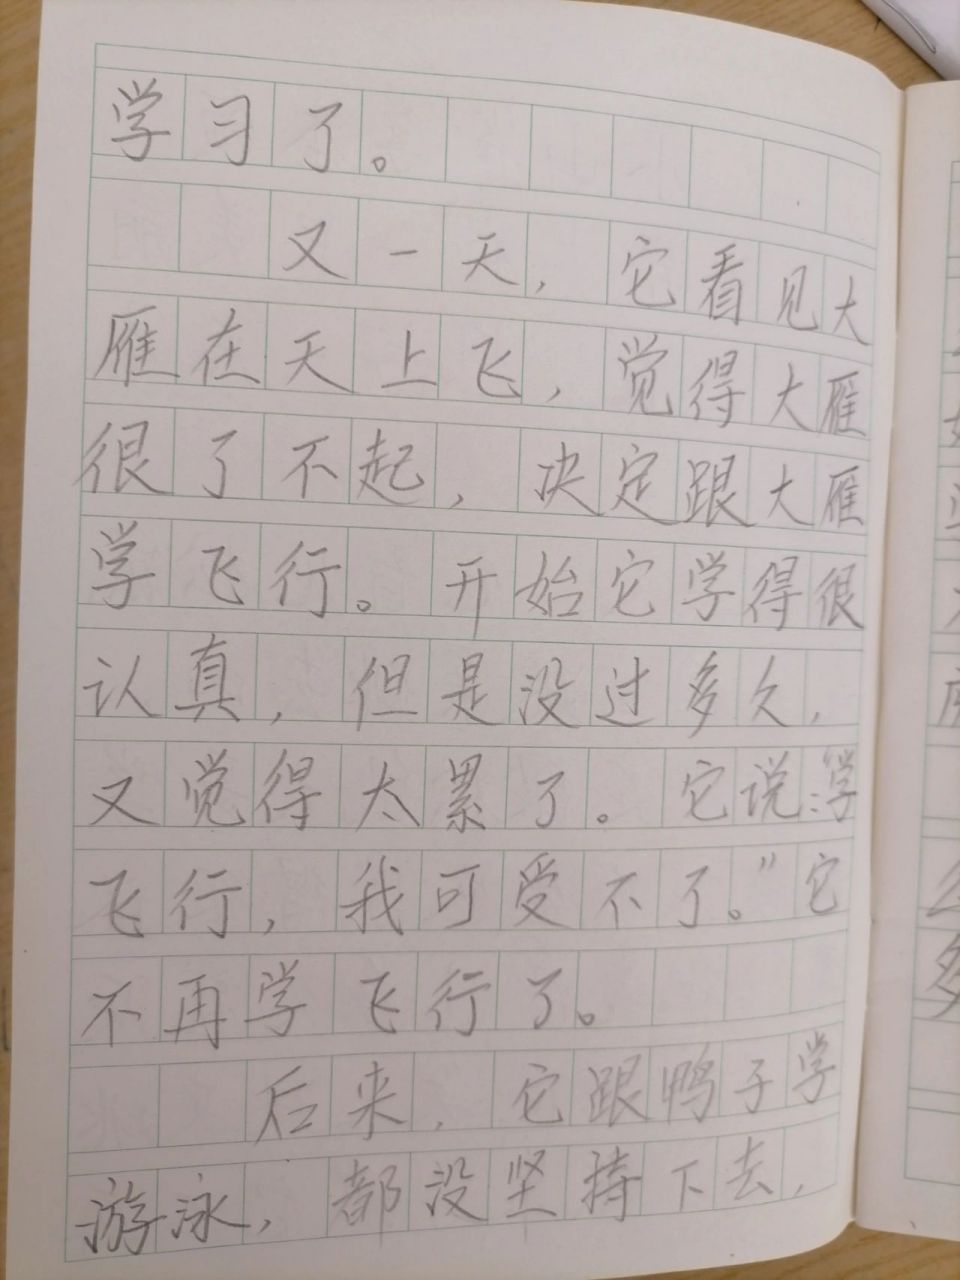 学习了。
又一天，它看见大
雁在天上飞，觉得大雁
很了不起，决定跟大雁
学飞行。开始它学得很
认真，但是没过多久，
又觉得太累了。它说：“学
飞行，我可受不了。”它
不再学飞行了。
后来，它跟鸭子学
游泳，都没坚持下去，